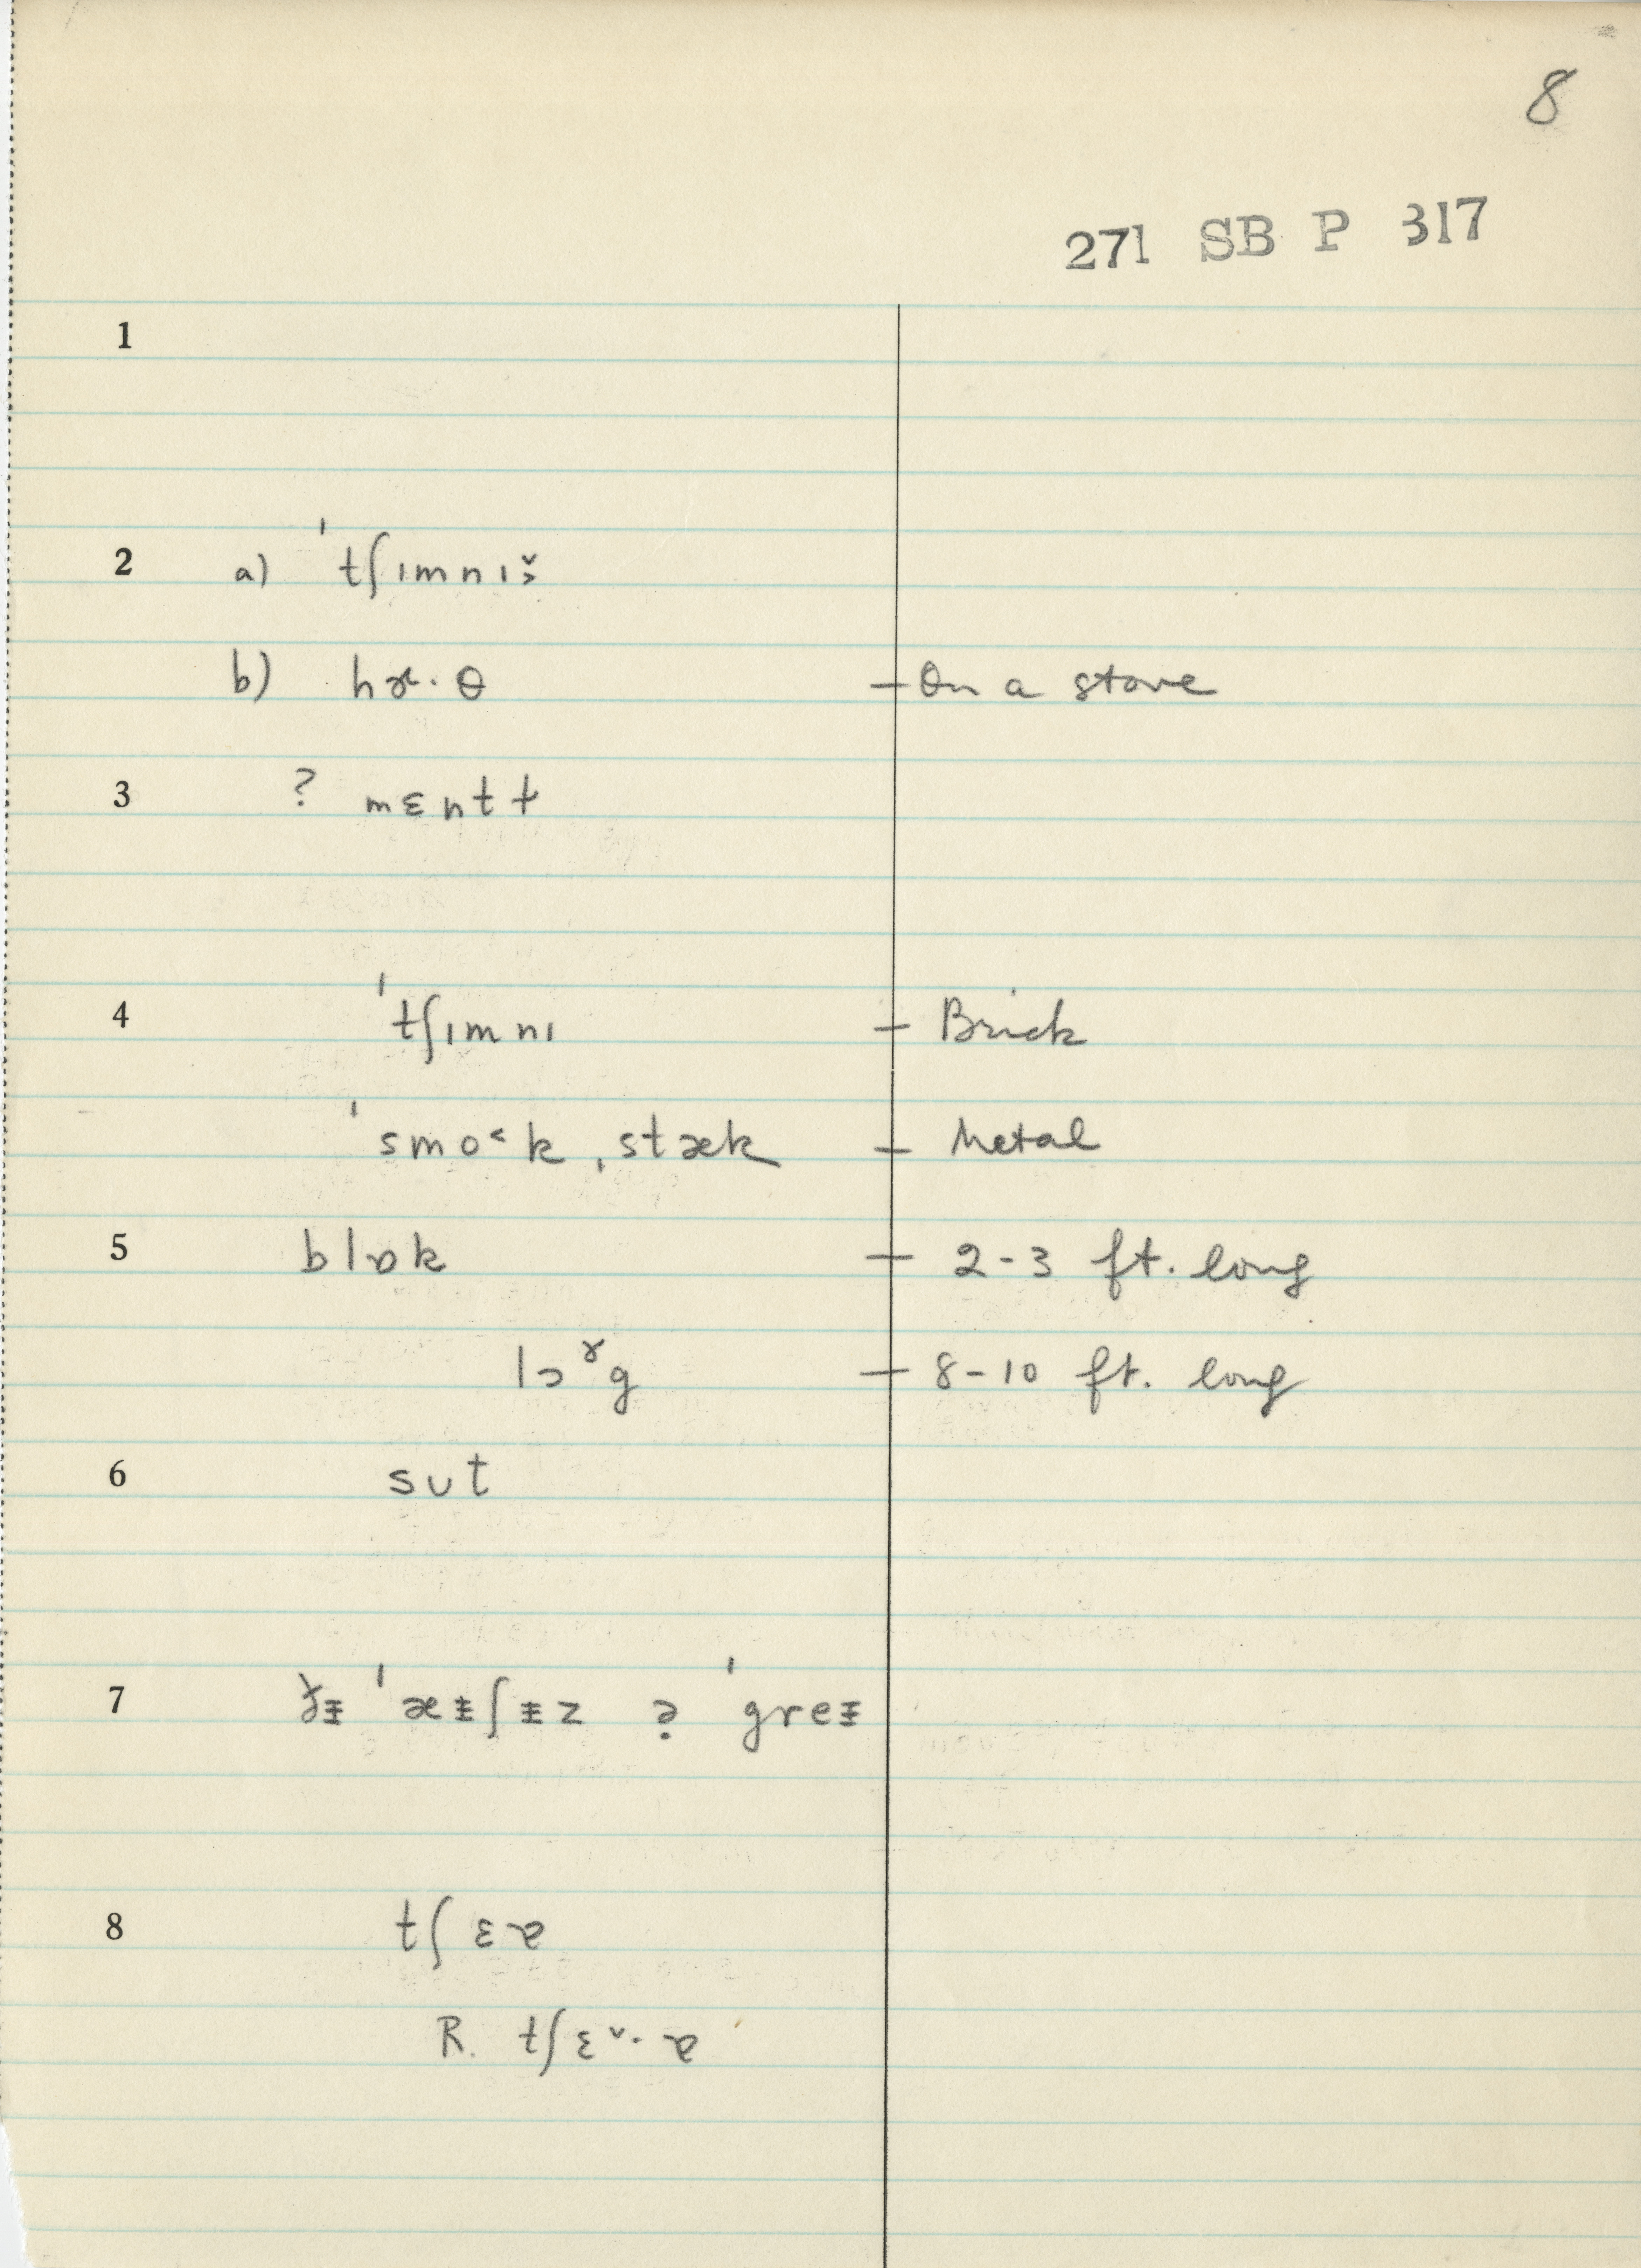 8
271 SB P 317
1
2 a) ˈtʃɪmnɪ
b) hɑ·θ – On a stove
3 ? mɛntɫ
4 ˈtʃɪmnɪ – Brick
ˈsmo˂k ˌstæk – Metal
5 blɒk – 2-3 ft. long
lɔˠg – 8-10 ft. long
6 sʊt
7 ˈæɨʃɨz ə ˈgreɨ
8 tʃɛɚ
R. tʃɛ˅·ɚ